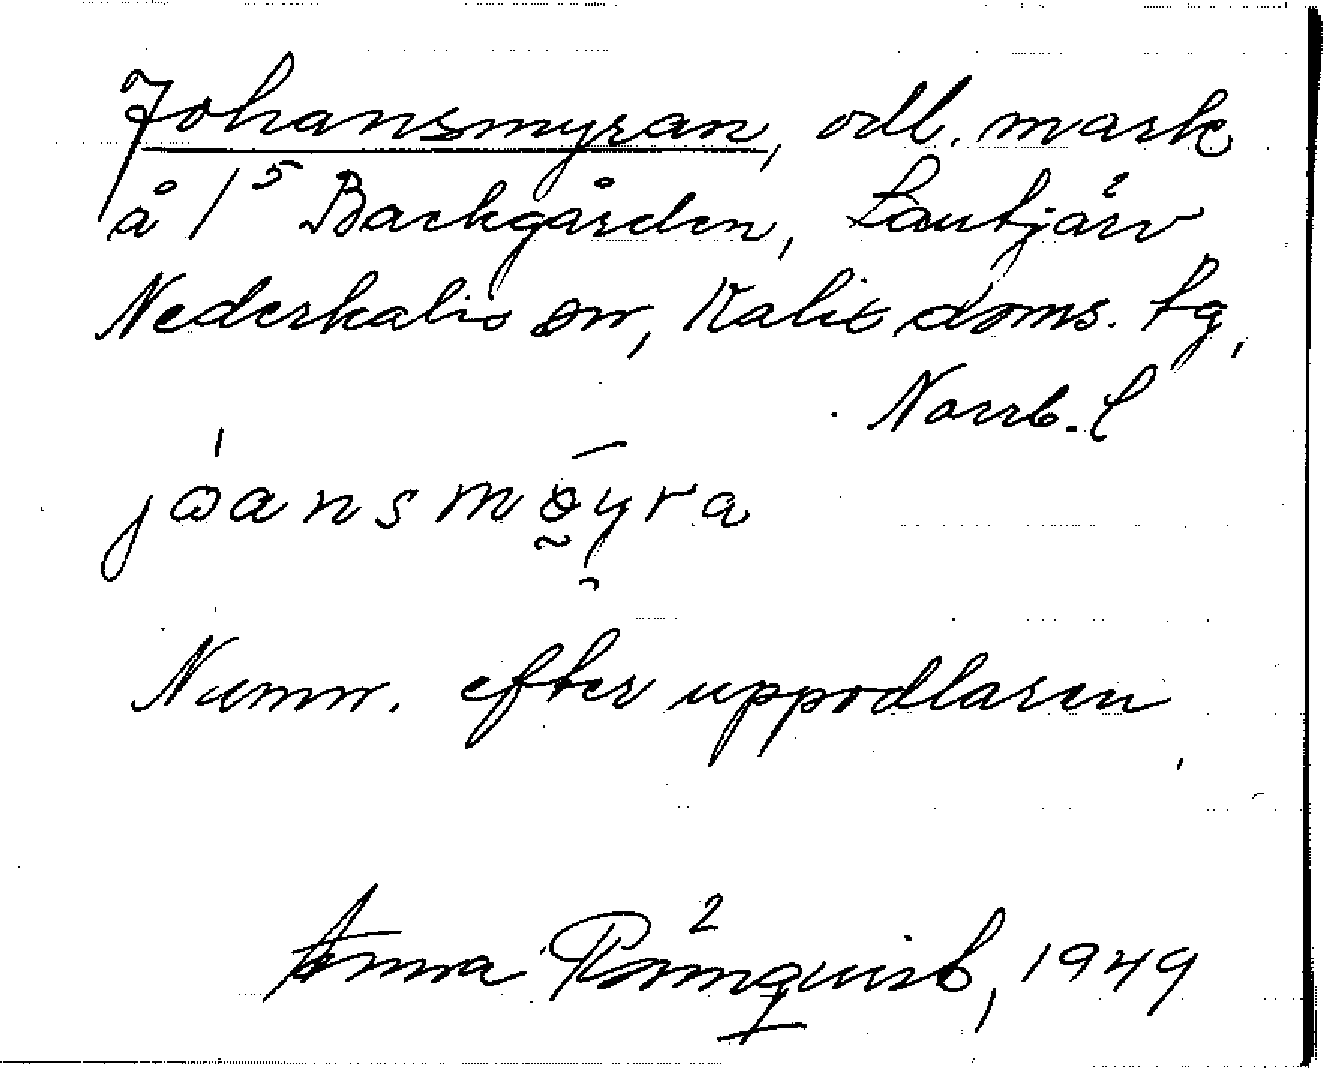 Johansmyran, odl. mark
å 1⁵ Backgården, Lantjärv
Nederkalix sn, Kalix doms. tg,
Norrb. l
jòansmöyra
Numr. efter uppodlaren
Anna Rönnquist, 1949